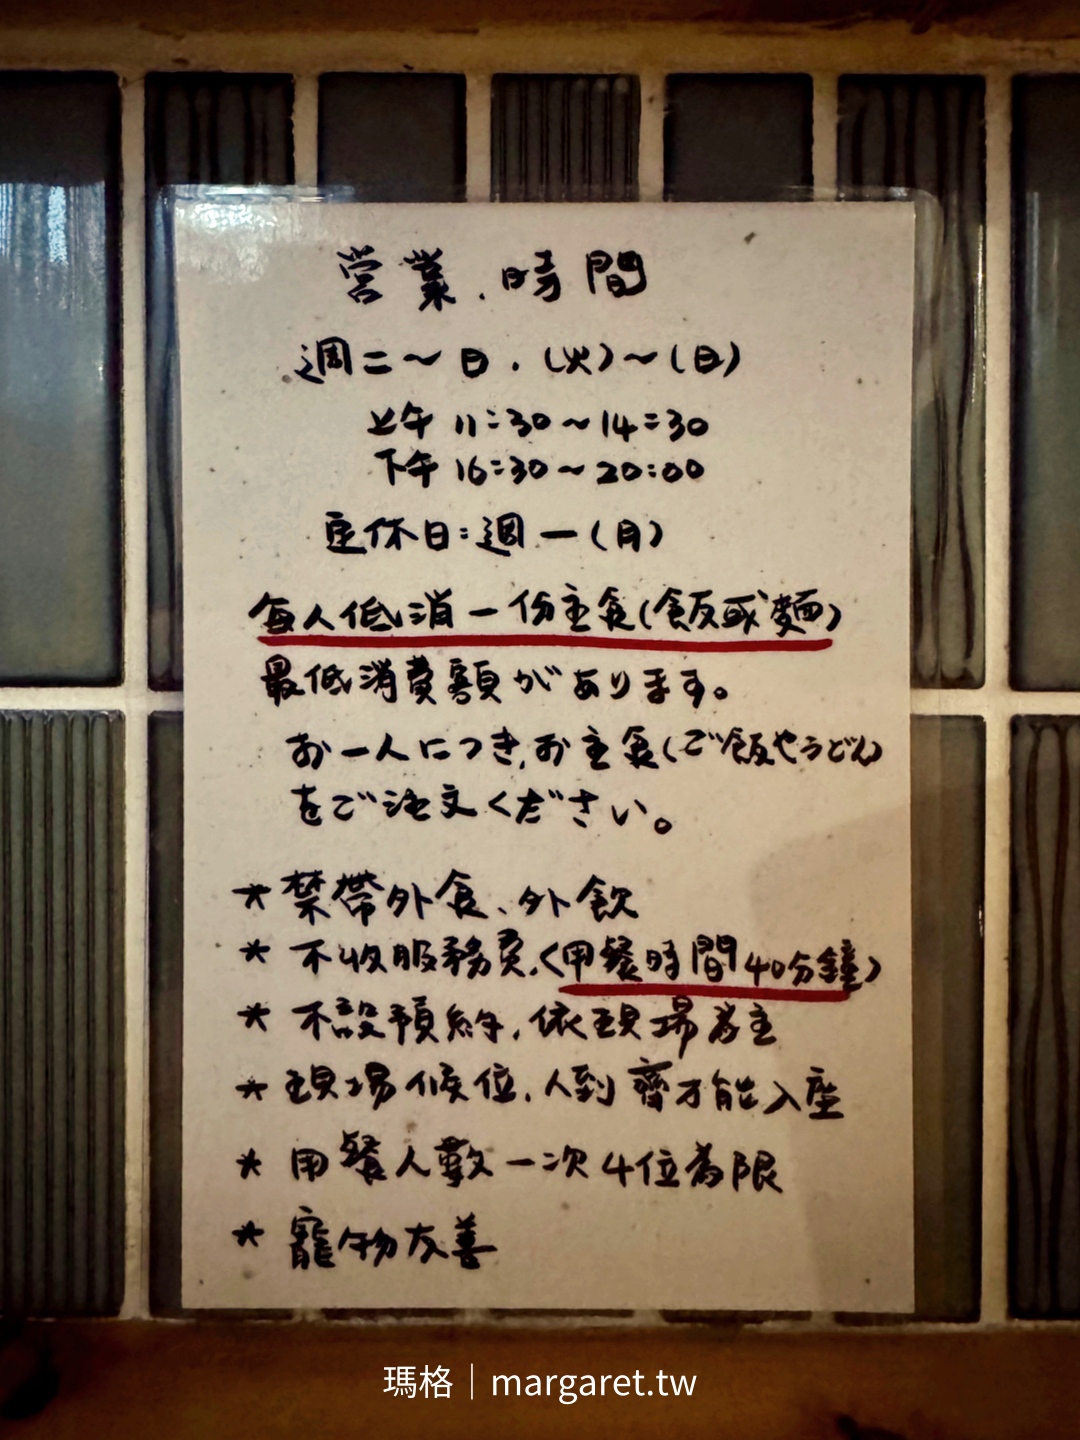 營業.時間
週二～日.(火)～(日)
上午 11:30～14:30
下午 16:30～20:00
定休日:週一(月)
每人低消一份主食(飯或麵)
最低消費額があります。
お一人につき,お主食(ご飯やうどん)
をご注文ください。
* 禁帶外食、外飲
* 不收服務費.<用餐時間40分鐘>
* 不設預約,依現場為主
* 現場候位,人到齊才能入座
* 用餐人數一次4位為限
* 寵物友善
瑪格｜margaret.tw